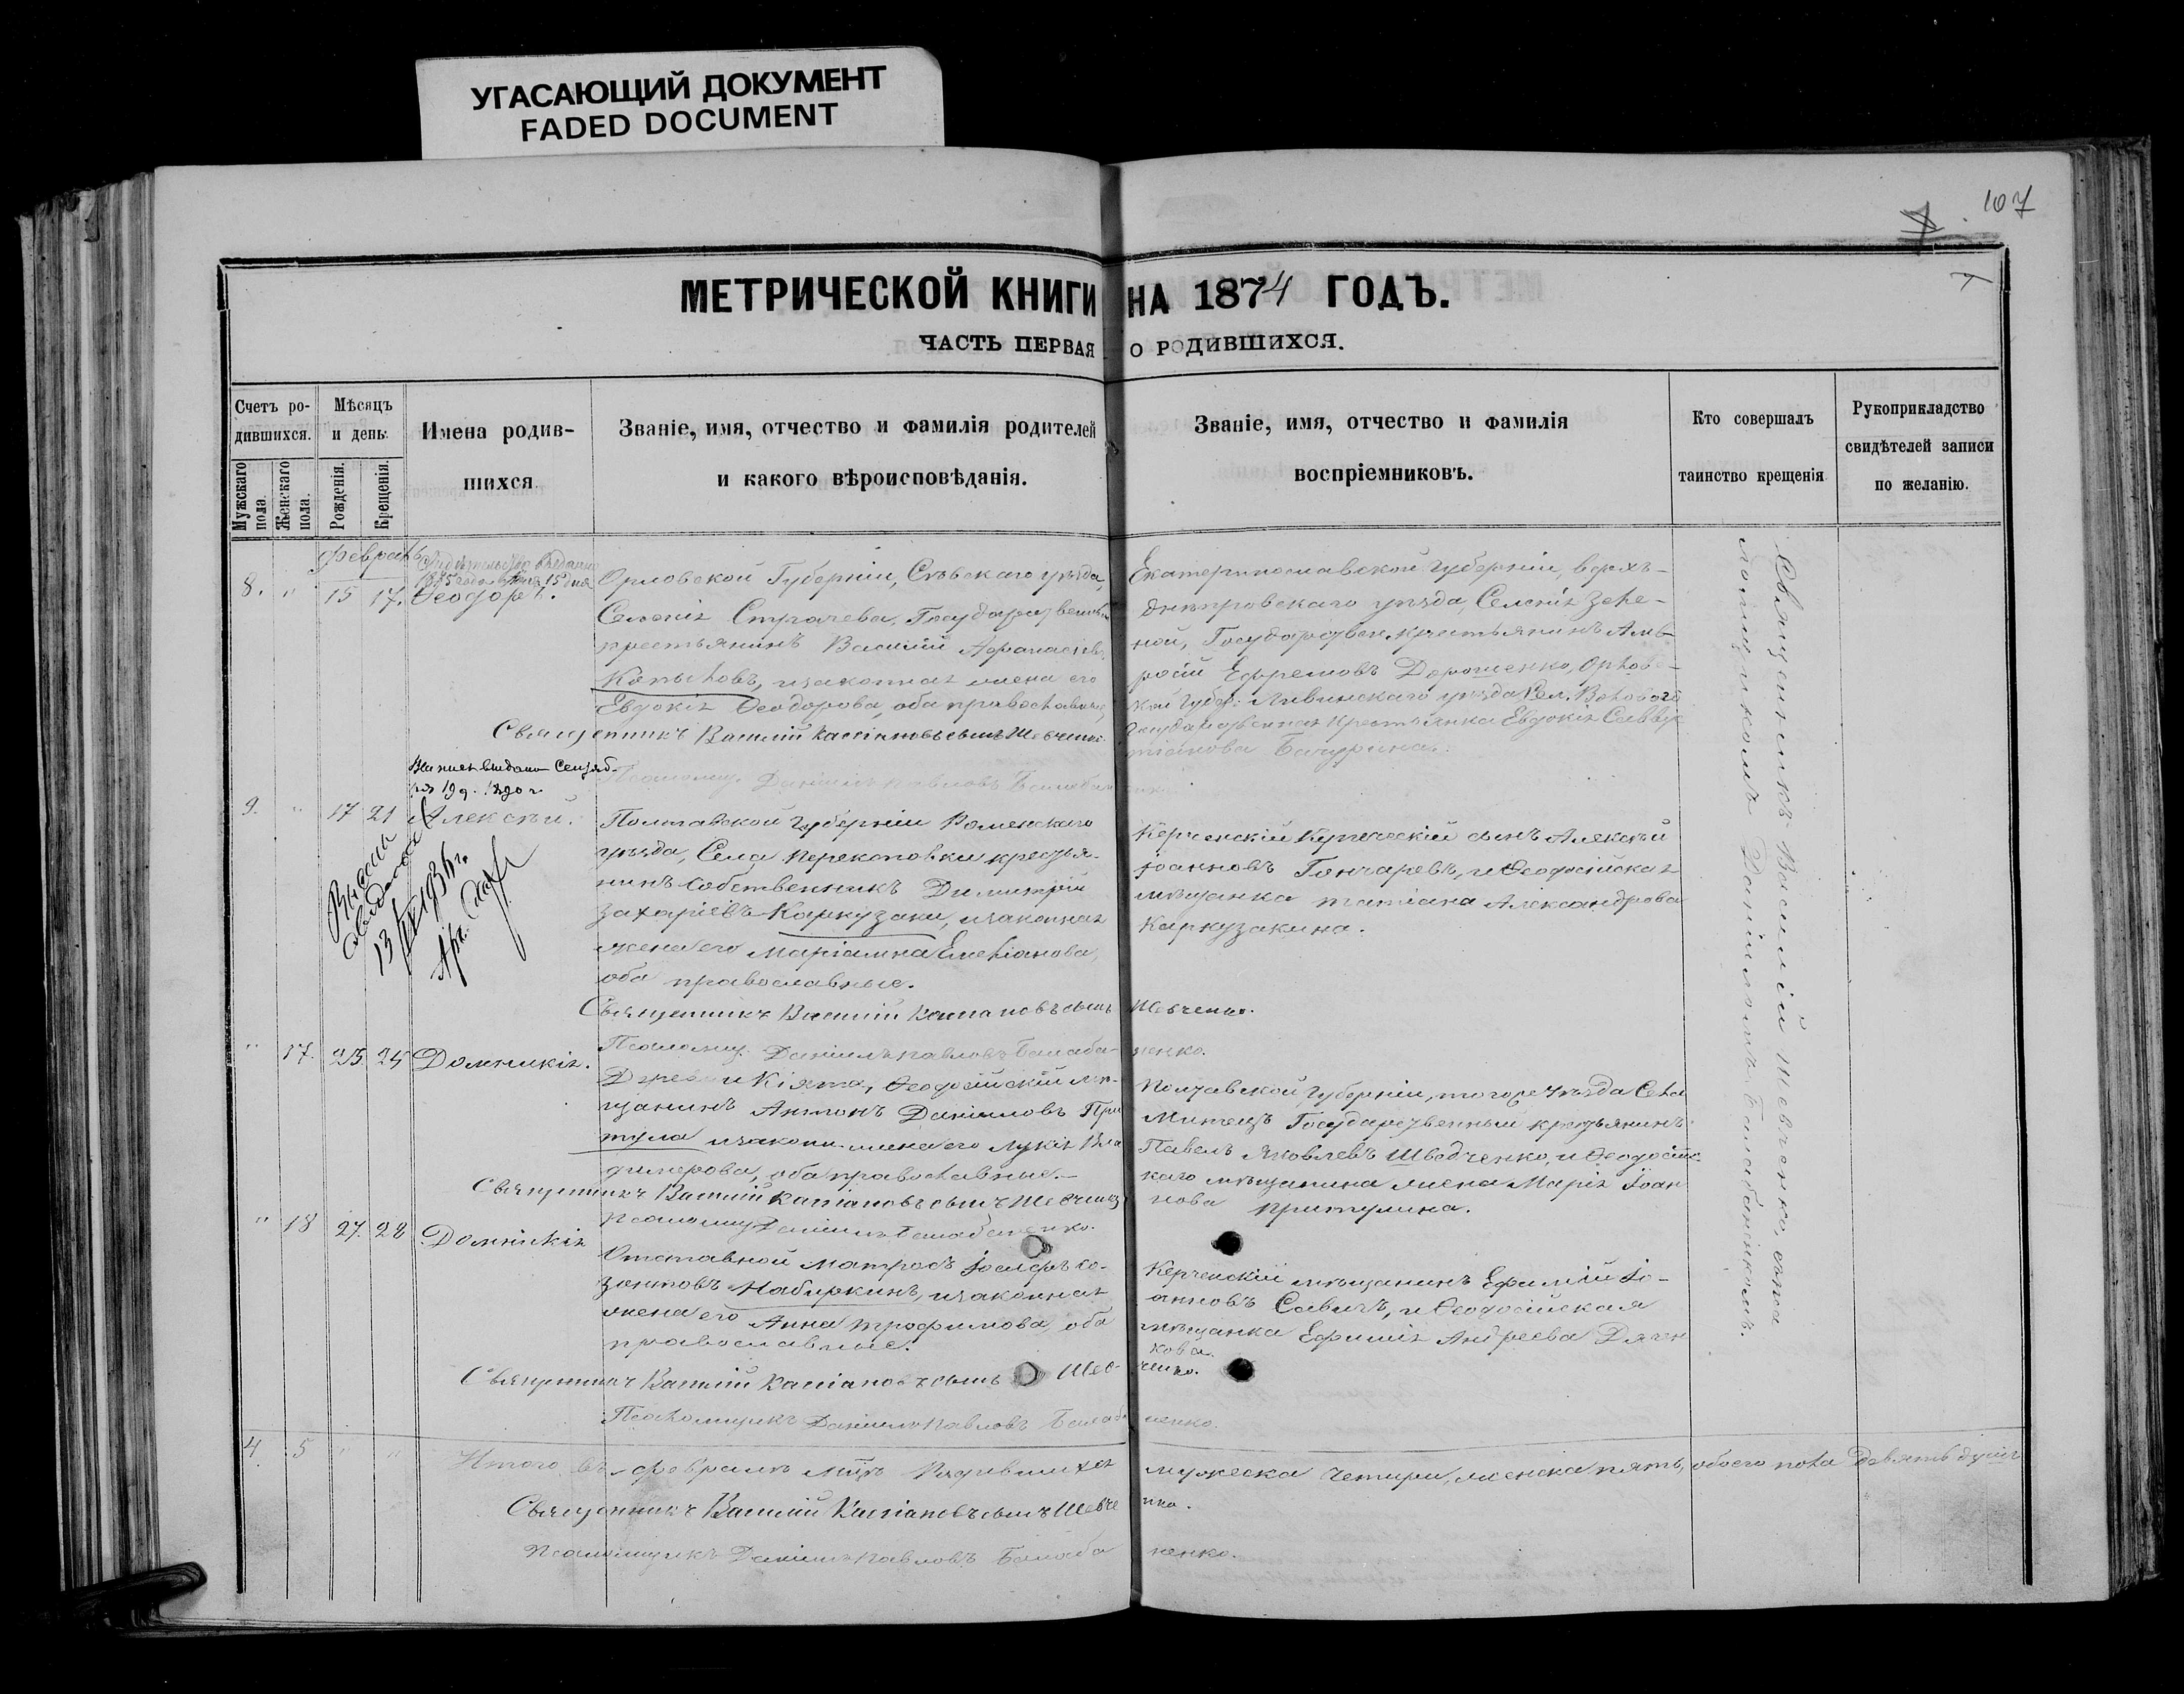 УГАСАЮЩИЙ ДОКУМЕНТ
FADED DOCUMENT
107
МЕТРИЧЕСКОЙ КНИГИ НА 1874 ГОДЪ.
ЧАСТЬ ПЕРВАЯ О РОДИВШИХСЯ.
Счетъ родившихся.
Мужскаго пола.
Женскаго пола.
Мѣсяцъ и день.
Рожденія.
Крещенія.
Имена родив-
шихся.
Званіе, имя, отчество и фамилія родителей
и какого вѣроисповѣданія.
Званіе, имя, отчество и фамилія
воспріемниковъ.
Кто совершалъ
таинство крещенія
Рукоприкладство
свидѣтелей записи
по желанію.
Февраль
8. " 15 17. Ѳеодоръ.
Орловской Губерніи, Сѣвскаго уѣзда,
Селенія Страчева, Государственный
крестьянинъ Василій Афанасіевъ
Копыловъ, и законная жена его
Евдокія Ѳеодорова, оба православные,
Священникъ Василій Кассіановъ сынъ Шевченко
Екатеринославской Губерніи, верхъ-
днѣпровскаго уѣзда, Селенія Зеле-
ной, Государствен. крестьянинъ Амв-
росій Ефремовъ Дорошенко, Орлов-
кой Губер: Ливинскаго уѣзда Сел. Воловаго
Государственная крестьянка Евдокія
Бачурина.
Псаломщ. Даніилъ Павловъ Балабаненко
9. " 17 21 Алексѣй.
13/IX 1936 г.
Полтавской Губерніи Роменскаго
уѣзда, Села Перекоповки крестья-
нинъ Собственникъ Димитрій
Захаріевъ Каркузаки, и законная
жена его Маріамна Емеліанова,
оба православные.
Священникъ Василій Кассіановъ сынъ Шевченко.
Керченскій Купеческій сынъ Алексѣй
Іоанновъ Гончаревъ, и Ѳеодосійская
мѣщанка Татіана Александрова
Каркузакина.
Псаломщ. Даніилъ Павловъ Балабаненко.
" 17. 23 24 Домникія.
Деревни Кіята, Ѳеодосійскій мѣ-
щанинъ Антонъ Даніиловъ При
тула и законн. жена его Лукія Вла
димерова, оба православные.
Священникъ Василій Кассіановъ сынъ Шевченко
Псаломщ. Даніилъ Балабаненко.
Полтавской Губерніи, того же уѣзда Села
Государственный крестьянинъ
Павелъ Яковлевъ Шведченко, и Ѳеодосійс-
каго мѣщанина жена Марія Іоан
нова Притулина.
" 18 27. 28 Домникія
Отставной Матросъ Іосифъ Со-
зонтовъ Набиркинъ, и законная
жена его Анна Трофимова, оба
православные.
Священникъ Василій Кассіановъ сынъ Шевченко.
Керченскій мѣщанинъ Ефимій Іо-
анновъ Савичъ, и Ѳеодосійская
мѣщанка Ефимія Андреева Дячен
кова.
Псаломщикъ Даніилъ Павловъ Балабаненко.
4. 5 " " Итого въ февралѣ мцѣ Родившихся мужеска четыри, женска пять, обоего пола девять душъ
Священникъ Василій Кассіановъ сынъ Шевченко.
Псаломщикъ Даніилъ Павловъ Балабаненко.
Священникъ Василій Шевченко, съ
псаломщикомъ Даніиломъ Балабаненкомъ.